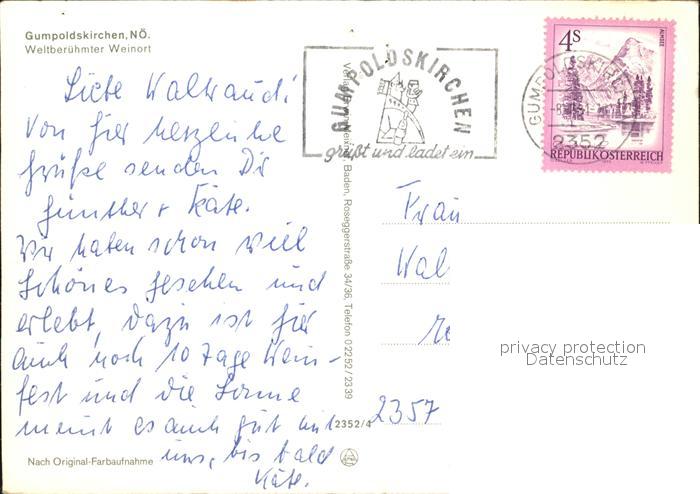 Gumpoldskirchen, NÖ.
Weltberühmter Weinort
Liebe Waltraud!
Von hier herzliche
Grüße senden Dir
Günther + Käte.
Wir haben schon viel
Schönes gesehen und
erlebt, dazu ist hier
auch noch 10 Tage Wein-
fest und die Sonne
meint es auch gut mit
uns, bis bald
Käte.
Nach Original-Farbaufnahme
2352/4
Baden, Roseggerstraße 34/36, Telefon 02252/2339
GUMPOLDSKIRCHEN
grüßt und ladet ein
GUMPOLDSKIRCHEN
2352
4S
ALMSEE
REPUBLIK ÖSTERREICH
Frau
Wal
2357
privacy protection
Datenschutz